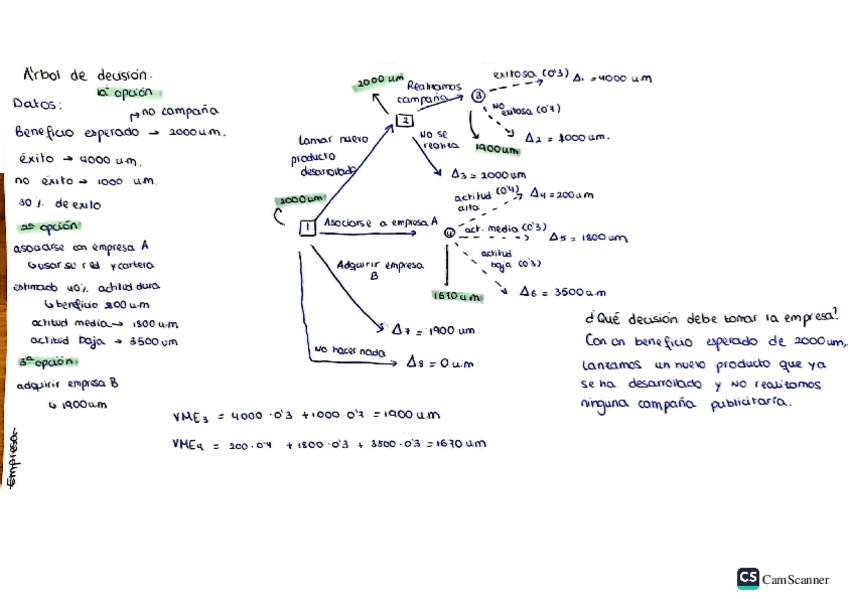 Árbol de decisión.
1ª opción
Datos:
no campaña
Beneficio esperado → 2000 um.
éxito → 4000 u.m.
no éxito → 1000 um.
30 % de exito
2ª opción
asociarse con empresa A
usar su red y cartera
estimado 40% actitud dura
beneficio 200 u.m
actitud media → 1800 u.m
actitud baja → 3500 um
3ª opción:
adquirir empresa B
1900 um
Empresa
2000 um
Realizamos campaña
3
exitosa (0'3) Δ1 = 4000 um
NO exitosa (0'7)
Δ2 = 1000 um.
1900 um
2
No se realiza
Δ3 = 2000 um
Lanzar nuevo producto desarrollado
2000 um
1
Asociarse a empresa A
4
actitud alta (0'4) Δ4 = 200 um
act. media (0'3)
Δ5 = 1800 um
actitud baja (0'3)
Δ6 = 3500 um
1670 um
Adquirir empresa B
Δ7 = 1900 um
No hacer nada
Δ8 = 0 u.m
VME3 = 4000 · 0'3 + 1000 · 0'7 = 1900 um
VME4 = 200 · 0'4 + 1800 · 0'3 + 3500 · 0'3 = 1670 um
¿Qué decisión debe tomar la empresa?
Con un beneficio esperado de 2000 um,
Lanzamos un nuevo producto que ya
se ha desarrollado y NO realizamos
ninguna campaña publicitaria.
CS CamScanner